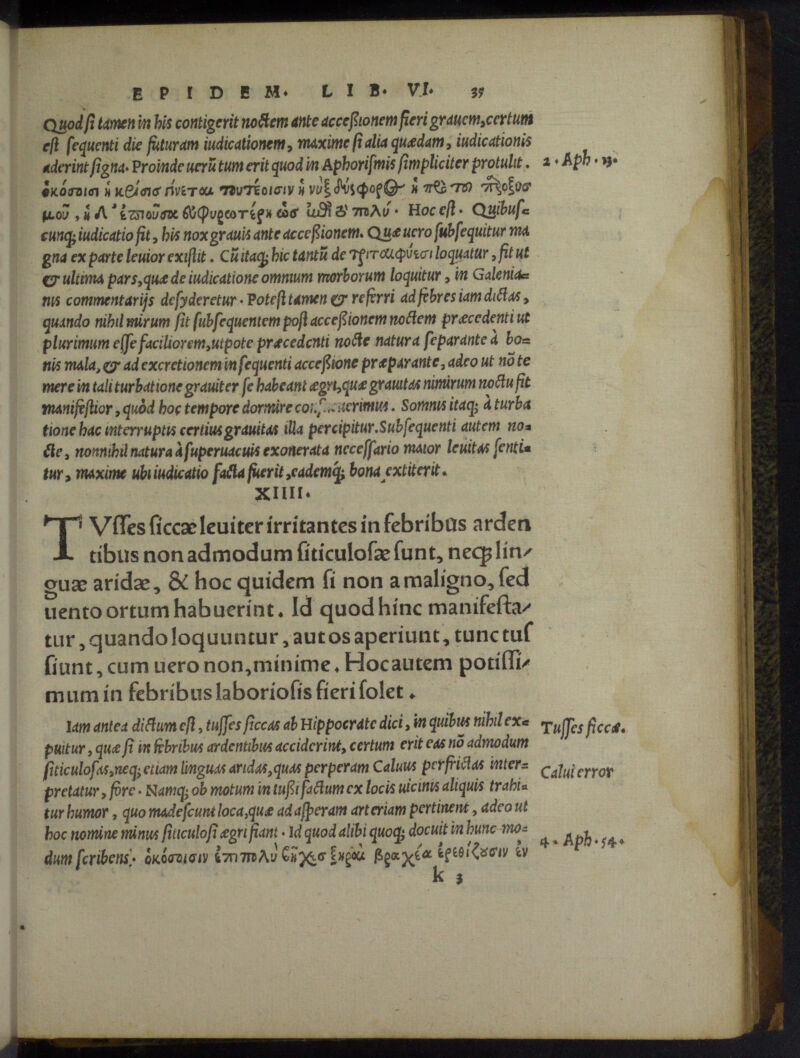 EPIDEM. LIB. VI. 35
Quod si tamen in his contigerit noctem ante accessionem fieri grauem, certum
est sequenti die futuram iudicationem, maxime si alia quædam, iudicationis
aderint signa. Proinde uerũ tum erit quod in Aphorismis simpliciter protulit.
2. Aph. 13.
ὁκόσοισι ἡ κρίσις γίνεται τουτέοισιν ἡ νὺξ δύσφορος ἡ πρὸ τοῦ παροξυσ
μοῦ, ἡ δ' ἐπιοῦσα εὐφορωτέρη ὡς ἐπὶ τὸ πολύ. Hoc est. Quibus=
cunq; iudicatio fit, his nox grauis ante accessionem. Quæ uero subsequitur ma
gna ex parte leuior existit. Cũ itaq; hic tantũ de τριταιοφυέσι loquatur, fit ut
& ultima pars, quæ de iudicatione omnium morborum loquitur, in Galenia=
nis commentarijs desyderetur. Potest tamen & referri ad febres iam dictas,
quando nihil mirum sit subsequentem post accessionem noctem præcedenti ut
plurimum esse faciliorem, utpote præcedenti nocte natura separante à bo=
nis mala, & ad excretionem in sequenti accessione præparante, adeo ut nõ te
mere in tali turbatione grauiter se habeant ægri, quæ grauitas nimirum noctu fit
manifestior, quòd hoc tempore dormire consueuerimus. Somnus itaq; à turba
tione hac interruptis certius grauitas illa percipitur. Subsequenti autem no=
cte, nonnihil natura à superuacuis exonerata necessario maior leuitas senti=
tur, maxime ubi iudicatio facta fuerit, eademq́; bona extiterit.
XIIII.
TVsses siccæ leuiter irritantes in febribus arden
tibus non admodum siticulosæ sunt, necq; lin/
guæ aridæ, & hoc quidem si non a maligno, sed
uento ortum habuerint. Id quod hinc manifesta/
tur, quando loquuntur, aut os aperiunt, tunc tus
siunt, cum uero non, minime. Hoc autem potissi/
mum in febribus laboriosis fieri solet.
Iam antea dictum est, tusses siccas ab Hippocrate dici, in quibus nihil ex=
Tusses siccæ.
puitur, quæ si in febribus ardentibus acciderint, certum erit eas nõ admodum
siticulosas, neq; etiam linguas aridas, quas perperam Caluus perfrictas inter=
Calui error
pretatur, fore. Namq; ob motum in tussi factum ex locis uicinis aliquis trahi=
tur humor, quo madescunt loca, quæ ad asperam arteriam pertinent, adeo ut
hoc nomine minus siticulosi ægri fiant. Id quod alibi quoq; docuit in hunc mo=
4. Aph. 54.
dum scribens. ὁκόσοισιν ἐπὶ πολὺ βῆχες ξηραὶ βραχέα ἐρεθίζουσιν ἐν
k 3